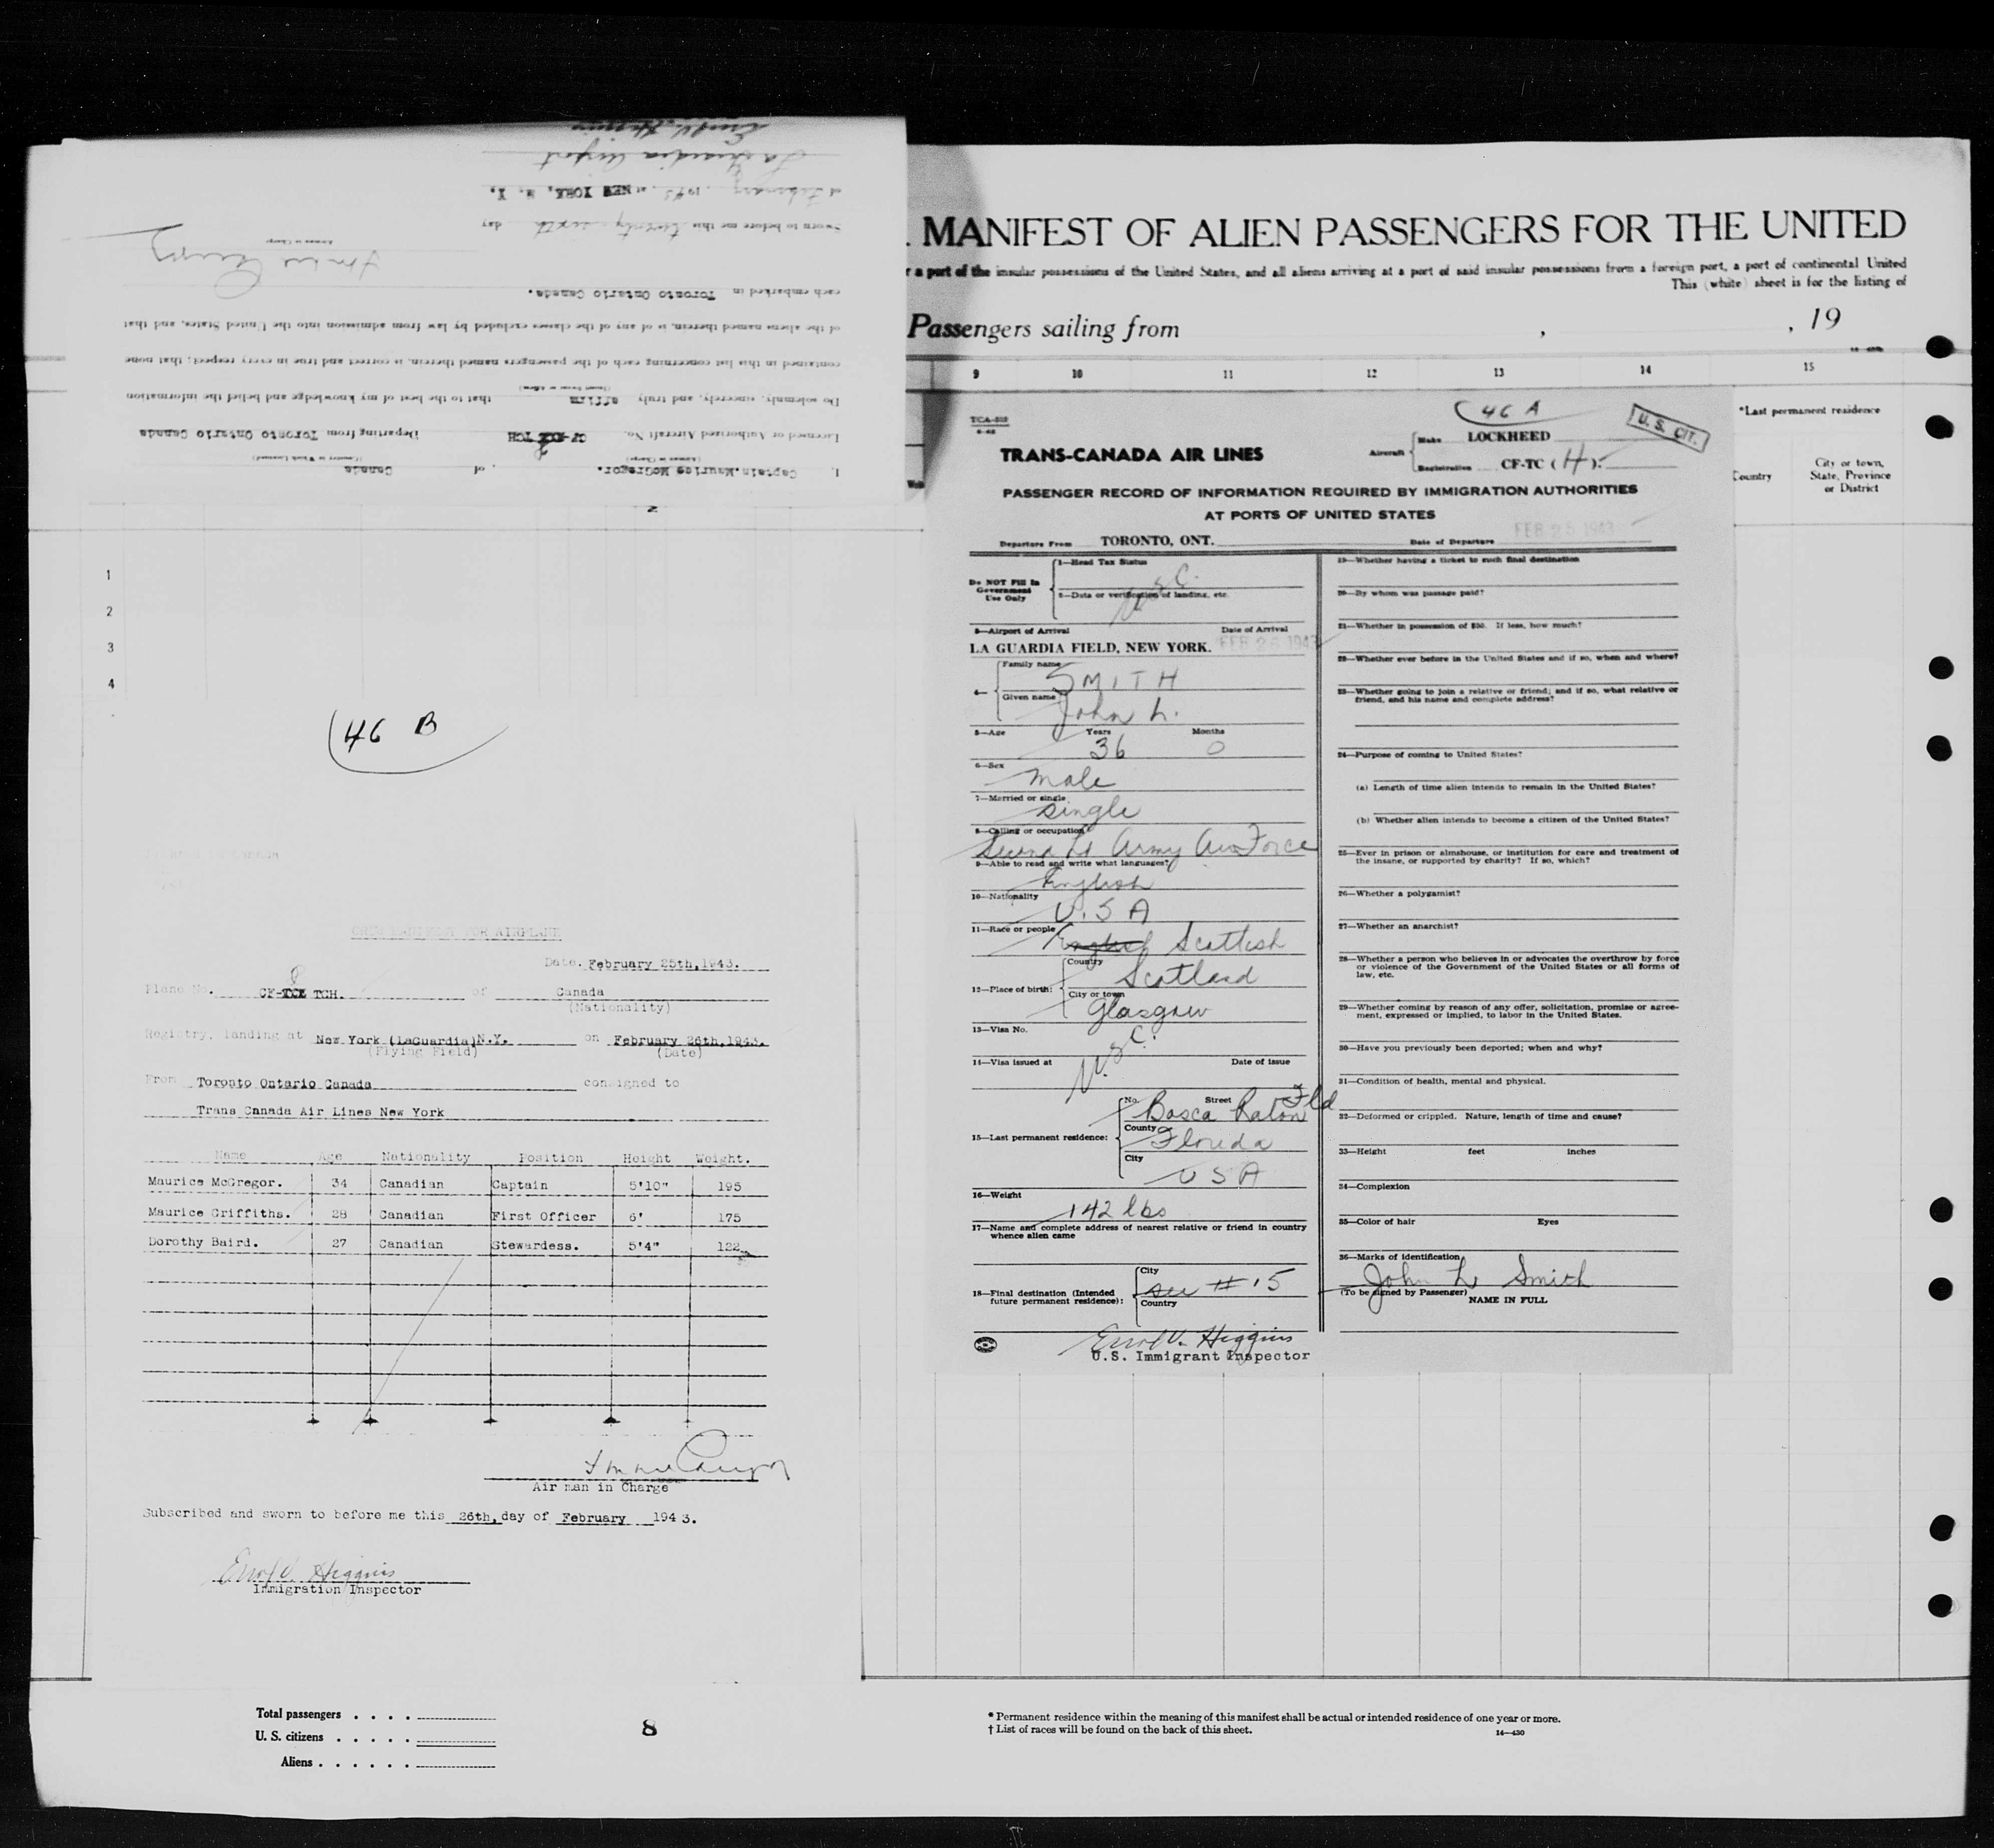 Errol V. Higgins
La Guardia Airport
of February, 1943, at NEW YORK, N. Y.
Sworn to before me this twenty sixth day
Airman in Charge
each embarked in Toronto Ontario Canada.
of the aliens named therein, is of any of the classes excluded by law from admission into the United States, and that
contained in this list concerning each of the passengers named therein, is correct and true in every respect; that none
Do solemnly, sincerely, and truly affirm that to the best of my knowledge and belief the information
Licensed or Authorized Aircraft No. CF- TCH Departing from Toronto Ontario Canada
(Airman in Charge) (Country in Which Licensed)
I, Captain.Maurice McGregor. , of Canada
1
2
3
4
46 B
CREW MANIFEST FOR AIRPLANE
Date. February 25th,1943.
Plane No. CF- TCH. of Canada
(Nationality)
Registry, landing at New York (LaGuardia)N.Y. on February 26th,1943.
(Flying Field) (Date)
From Toronto Ontario Canada consigned to
Trans Canada Air Lines New York
Name Age Nationality Position Height Weight.
Maurice McGregor. 34 Canadian Captain 5'10" 195
Maurice Griffiths. 28 Canadian First Officer 6' 175
Dorothy Baird. 27 Canadian Stewardess. 5'4" 122
Air man in Charge
Subscribed and sworn to before me this 26th, day of February 1943.
Errol V. Higgins
Immigration Inspector
Total passengers . . . .
U. S. citizens . . . . .
Aliens . . . . . .
8
MANIFEST OF ALIEN PASSENGERS FOR THE UNITED
r a part of the insular possessions of the United States, and all aliens arriving at a port of said insular possessions from a foreign port, a port of continental United
This (white) sheet is for the listing of
Passengers sailing from , , 19
9 10 11 12 13 14 15
*Last permanent residence
Country City or town, State, Province or District
TCA-
46 A
U. S. CIT.
TRANS-CANADA AIR LINES
Aircraft Make LOCKHEED
Registration CF-TC (H).
PASSENGER RECORD OF INFORMATION REQUIRED BY IMMIGRATION AUTHORITIES
AT PORTS OF UNITED STATES
Departure From TORONTO, ONT. Date of Departure FEB 25 1943
Do NOT Fill In Government Use Only
1—Head Tax Status
USC.
2—Data or verification of landing, etc.
3—Airport of Arrival Date of Arrival
LA GUARDIA FIELD, NEW YORK. FEB 26 1943
4— Family name SMITH
Given name John L.
5—Age Years 36 Months 0
6—Sex
Male
7—Married or single
Single
8—Calling or occupation
Second Lt Army Air Force
9—Able to read and write what languages?
English
10—Nationality
U.S A
11—Race or people English Scottish
12—Place of birth: Country Scotland
City or town Glasgow
13—Visa No.
U.S.C.
14—Visa issued at Date of issue
15—Last permanent residence: No. Street Bosca Raton Fld
County Florida
City USA
16—Weight
142 lbs
17—Name and complete address of nearest relative or friend in country
whence alien came
18—Final destination (Intended
future permanent residence): City see # 15
Country
Errol V. Higgins
U.S. Immigrant Inspector
19—Whether having a ticket to such final destination
20—By whom was passage paid?
21—Whether in possession of $50. If less, how much?
22—Whether ever before in the United States and if so, when and where?
23—Whether going to join a relative or friend; and if so, what relative or
friend, and his name and complete address?
24—Purpose of coming to United States?
(a) Length of time alien intends to remain in the United States?
(b) Whether alien intends to become a citizen of the United States?
25—Ever in prison or almshouse, or institution for care and treatment of
the insane, or supported by charity? If so, which?
26—Whether a polygamist?
27—Whether an anarchist?
28—Whether a person who believes in or advocates the overthrow by force
or violence of the Government of the United States or all forms of
law, etc.
29—Whether coming by reason of any offer, solicitation, promise or agree-
ment, expressed or implied, to labor in the United States.
30—Have you previously been deported; when and why?
31—Condition of health, mental and physical.
32—Deformed or crippled. Nature, length of time and cause?
33—Height feet inches
34—Complexion
35—Color of hair Eyes
36—Marks of identification
John L Smith
(To be signed by Passenger)
NAME IN FULL
* Permanent residence within the meaning of this manifest shall be actual or intended residence of one year or more.
† List of races will be found on the back of this sheet.
14—430